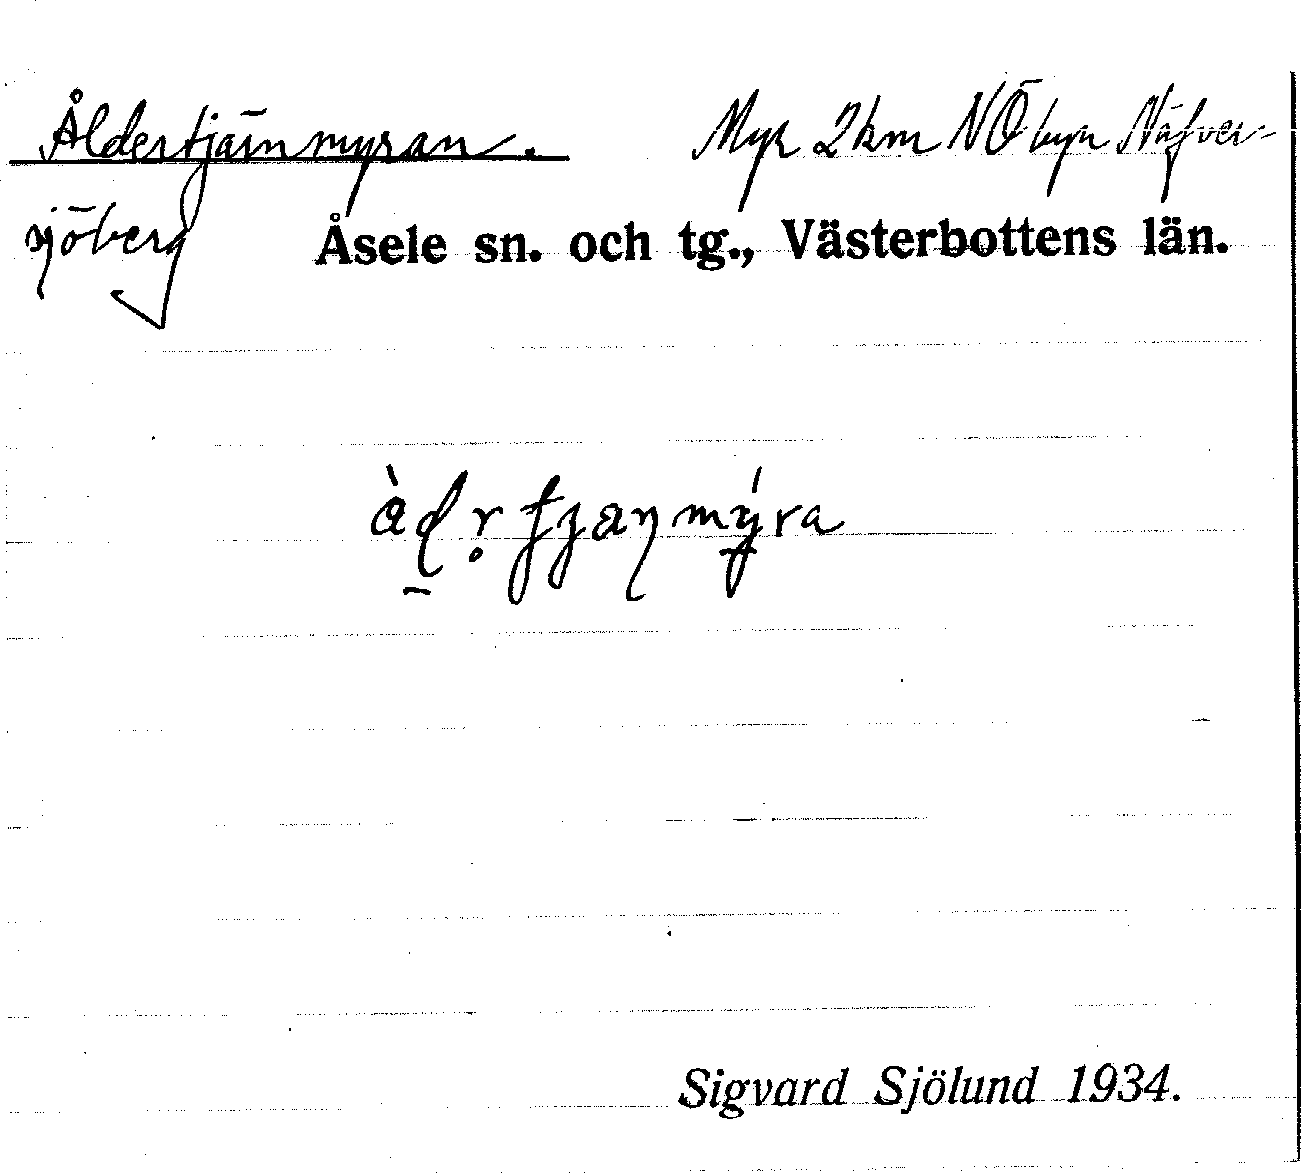 Åldertjärnmyran. Myr 2 km NÖ byn Näfver-
sjöberg Åsele sn. och tg., Västerbottens län.
Sigvard Sjölund 1934.